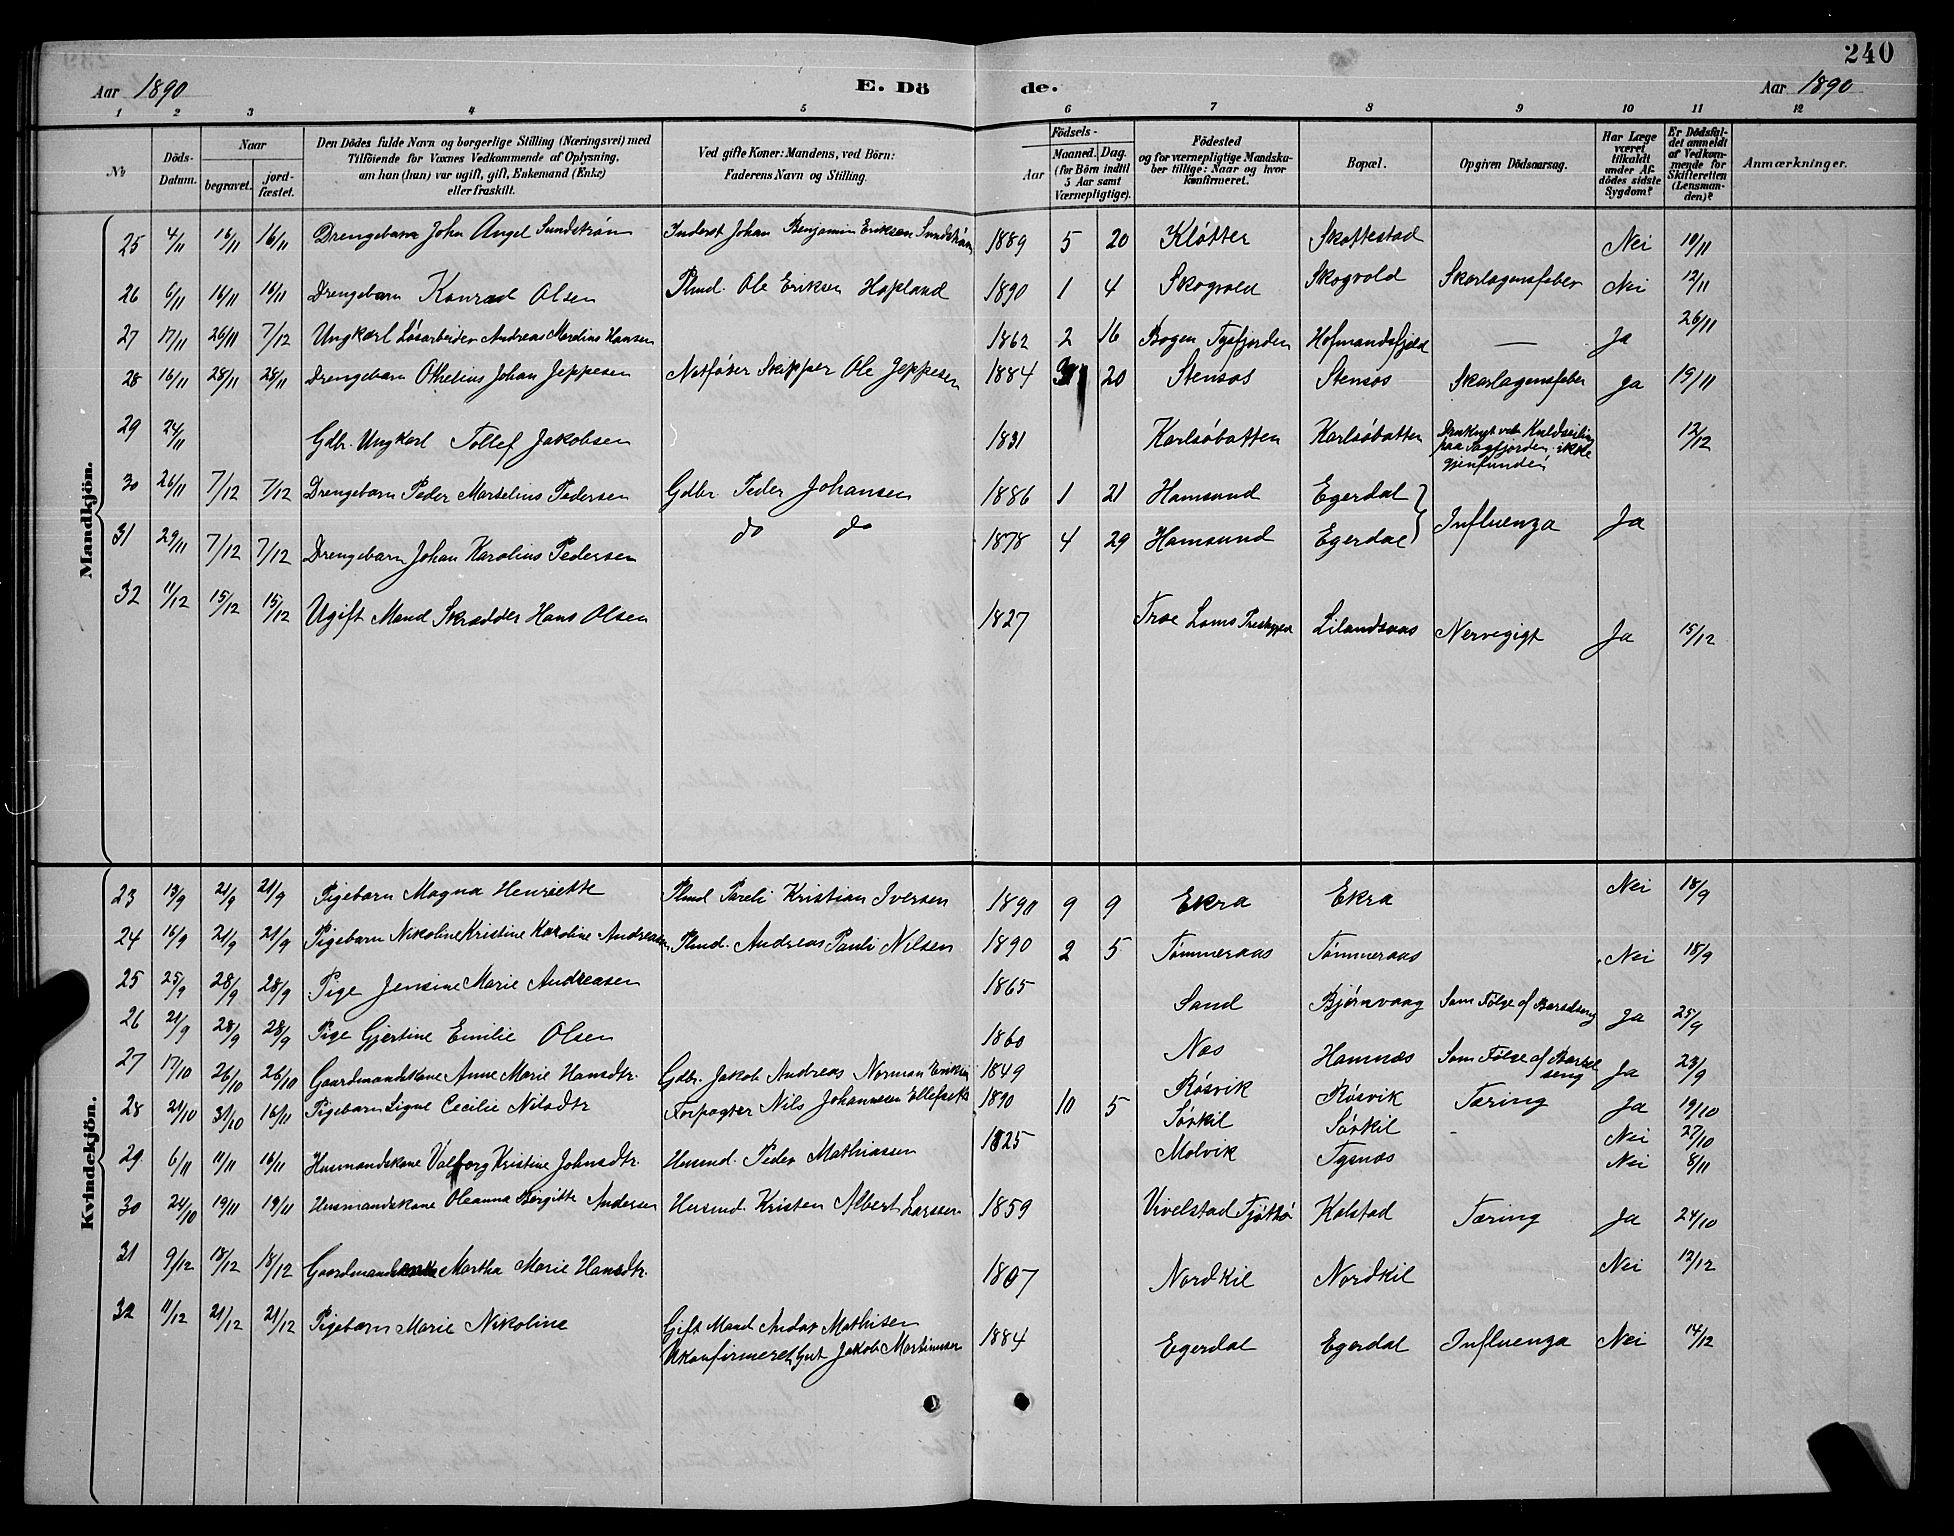 240
Aar 1890 E. Dö de. Aar 1890
1 2 3 4 5 6 7 8 9 10 11 12
No
Döds-Datum.
Naar
begravet.
jord-fæstet.
Den Dödes fulde Navn og borgerlige Stilling (Næringsvei) med
Tilföiende for Voxnes Vedkommende af Oplysning,
om han (hun) var ugift, gift, Enkemand (Enke)
eller fraskilt.
Ved gifte Koner: Mandens, ved Börn:
Faderens Navn og Stilling.
Födsels-
Aar
Maaned. Dag.
(for Börn indtil
5 Aar samt
Værnepligtige).
Födested
og for værnepligtige Mandska-
ber tillige: Naar og hvor
konfirmeret.
Bopæl.
Opgiven Dödsaarsag.
Har Læge
været
tilkaldt
under Af-
dödes sidste
Sygdom?
Er Dödsfal-
det anmeldt
af Vedkom-
mende for
Skifteretten
(Lensman-
den)?
Anmærkninger.
Mandkjön.
25 4/11 16/11 16/11 Drengebarn John Angel Sundstrøm Inderst Johan Benjamin Eriksen Sundstrøm 1889 5 20 Kløtter Skottestad Nei 10/11
26 6/11 16/11 16/11 Drengebarn Konrad Olsen Plmd. Ole Eriksen Hopland 1890 1 4 Skogvold Skogvold Skarlagensfeber Nei 12/11
27 17/11 26/11 7/12 Ungkarl Løsarbeider Andreas Merelius Hansen 1862 2 16 Bogen Tysfjorden Hofmandsfjeld — Ja 26/11
28 16/11 28/11 28/11 Drengebarn Othelius Johan Jeppesen Notfører Skipper Ole Jeppesen 1884 20 Stensøs Stensøs Skarlagensfeber Ja 19/11
29 24/11 Gdbr. Ungkarl Tollef Jakobsen 1831 Karlsøbotten Karlsøbotten Druknet ved Kuldseiling
paa Sagfjorden ikke
gjenfunden 12/12
30 26/11 7/12 7/12 Drengebarn Peder Marselius Pedersen Gdbr. Peder Johansen 1886 1 21 Hamsund Egerdal
31 29/11 7/12 7/12 Drengebarn Johan Karolius Pedersen do do 1878 4 29 Hamsund Egerdal Influenza Ja
32 11/12 15/12 15/12 Ugift Mand Skrædder Hans Olsen 1827 Troe Loms Lilandsaas Nervegigt Ja 15/12
Kvindekjön.
23 13/9 21/9 21/9 Pigebarn Magna Henriette Plmd Pareli Kristian Iversen 1890 9 9 Ekra Ekra Nei 18/9
24 16/9 21/9 21/9 Pigebarn Nikoline Kristine Karoline Andreasen Plmd. Andreas Pauli Nilsen 1890 2 5 Tømmeraas Tømmeraas Nei 18/9
25 25/9 28/9 28/9 Pige Jensine Marie Andreasen 1865 Sand Bjørnvaag Som Følge af Barselseng Ja 25/9
26 21/9 28/9 28/9 Pige Gjertine Emilie Olsen 1860 Næs Hamnæs Som Følge af Barsel
seng Ja 23/9
27 17/10 26/10 26/10 Gaardmandskone Anne Marie Hansdtr. Gdbr. Jakob Andreas Norman Eriksen 1849 Røsvik Røsvik Tæring Ja 19/10
28 21/10 31/10 16/11 Pigebarn Signe Cecilie Nilsdtr Forpagter Nils Johannesen 1890 10 5 Sørkil Sørkil - Nei 27/10
29 6/11 11/11 16/11 Husmandskone Valborg Kristine Johnsdtr. Husmd. Peder Mathiassen 1825 Molvik Tysnæs Nei 8/11
30 24/10 19/11 19/11 Husmandskone Oleanna Birgitte Andersen Husmd. Kristen Albert Larssen 1859 Vivelstad Tjøttø Kalstad Tæring Ja 24/10
31 9/12 18/12 18/12 Martha Marie Hansdtr. 1807 Nordkil Nordkil Nei 12/12
32 11/12 21/12 21/12 Pigebarn Marie Nikoline Gift Mand Andor Mathisen
Ukonfirmeret Gut Jakob Martinusen 1884 Egerdal Egerdal Influenza Nei 14/12